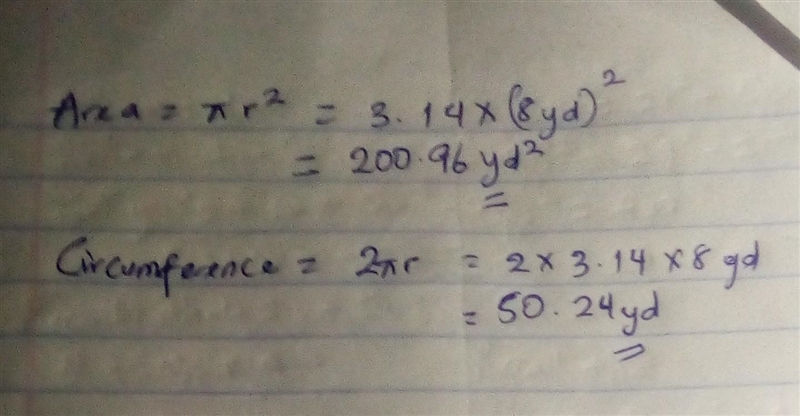 Area = πr² = 3.14 × (8yd)²
= 200.96 yd²
Circumference = 2πr = 2 × 3.14 × 8 yd
= 50.24yd